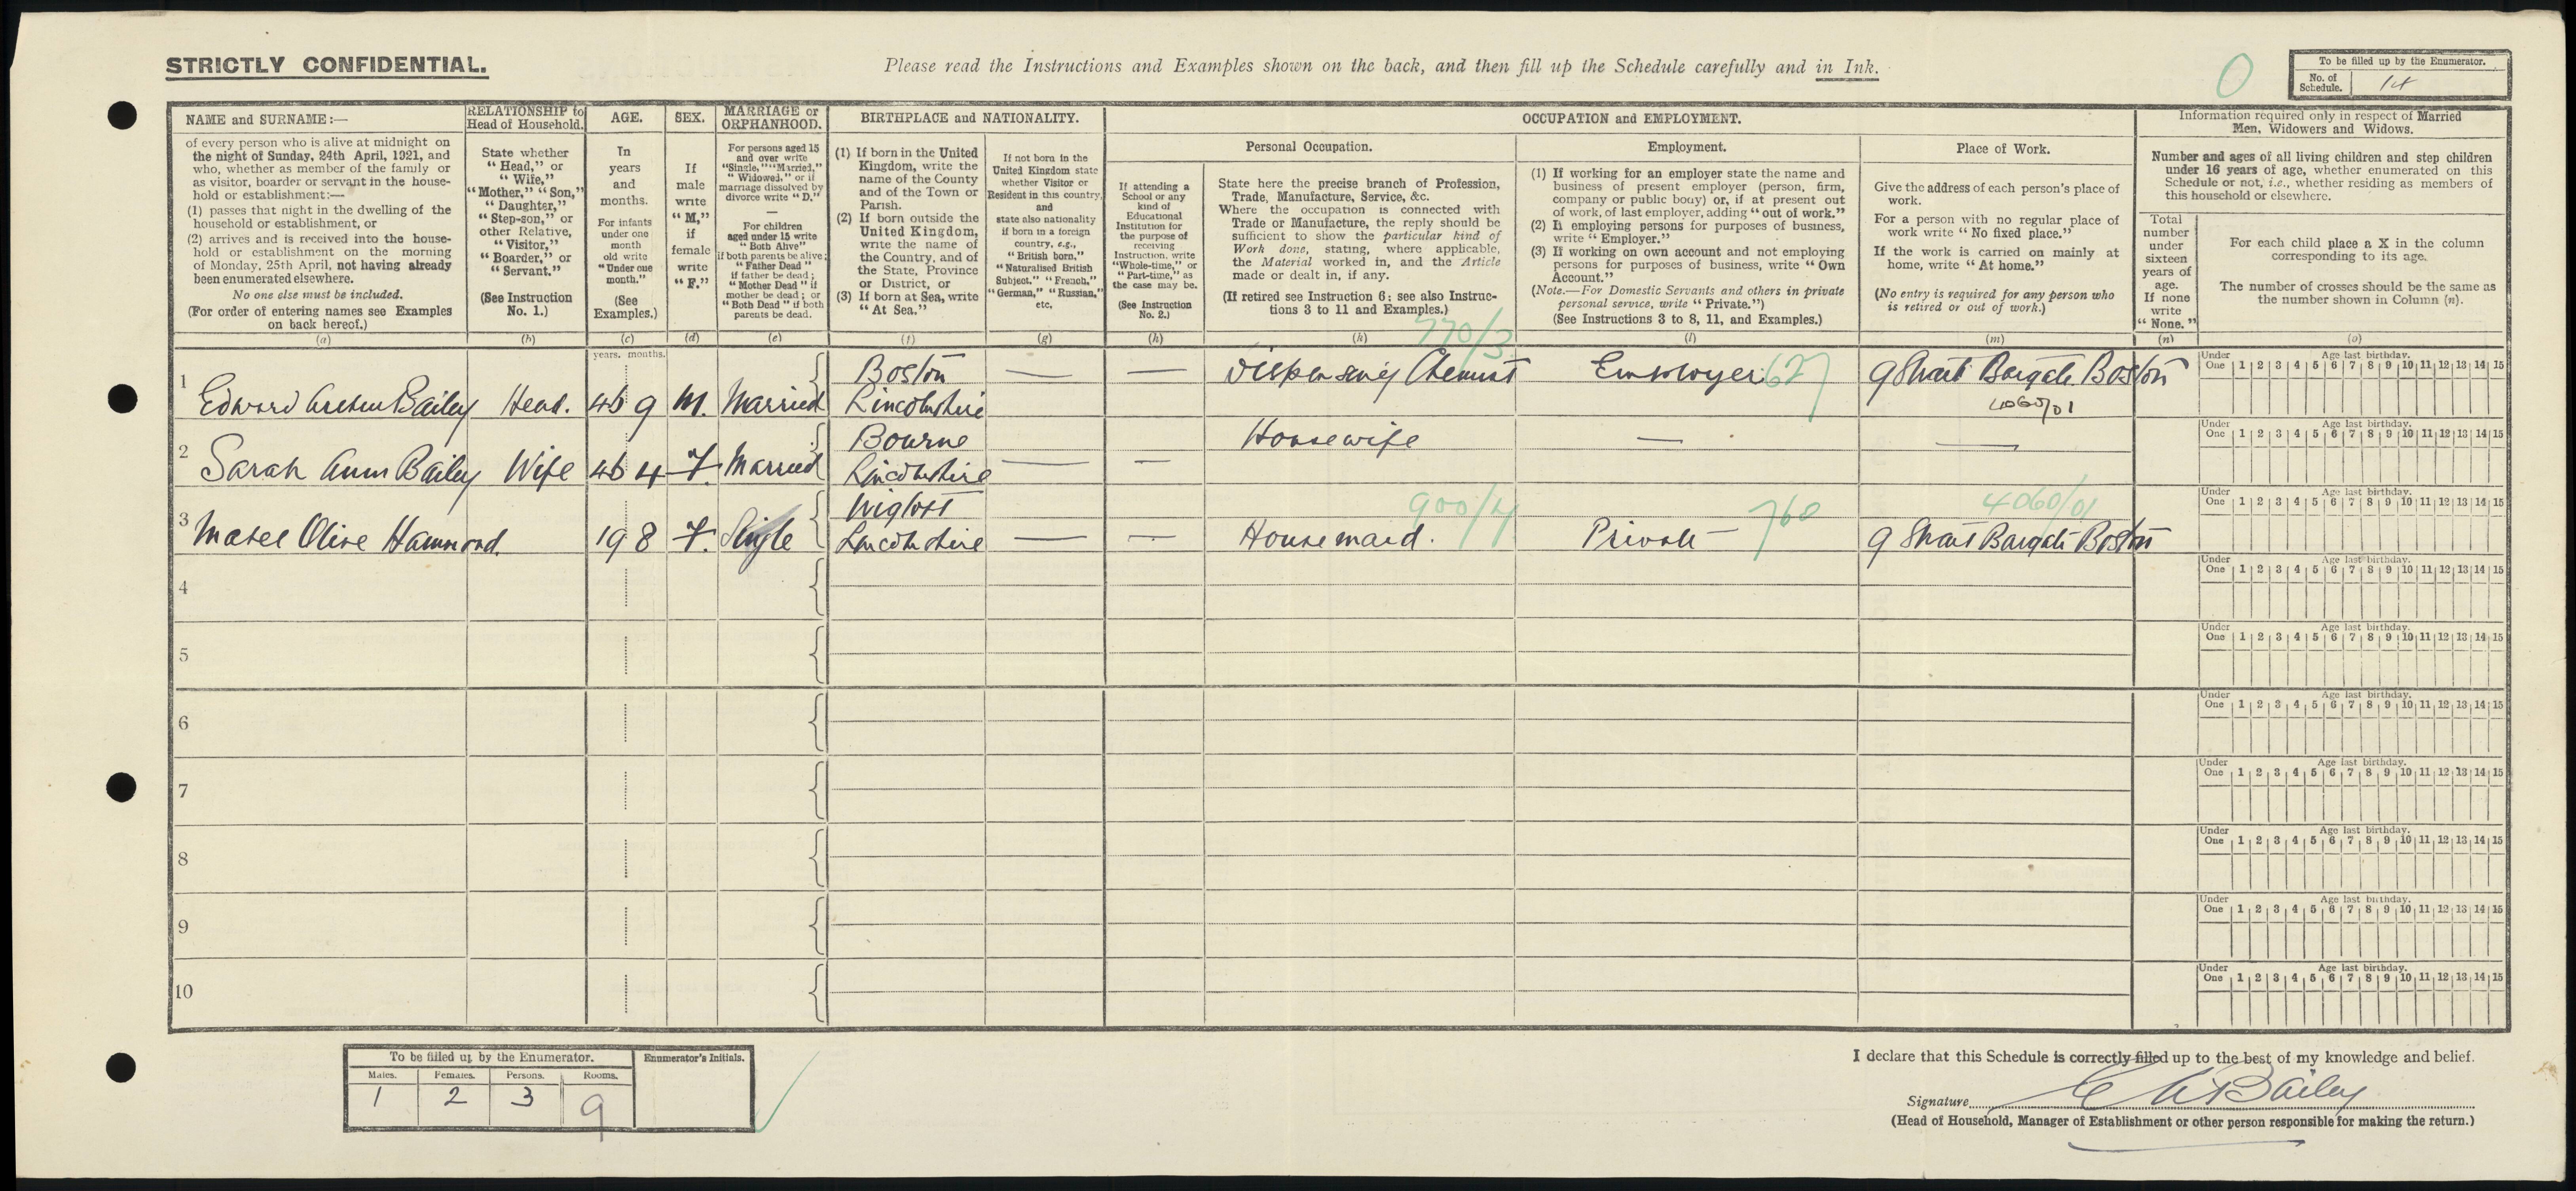 STRICTLY CONFIDENTIAL.
Please read the Instructions and Examples shown on the back, and then fill up the Schedule carefully and in Ink.
0
To be filled up by the Enumerator.
No. of Schedule. 14
NAME and SURNAME:—
of every person who is alive at midnight on
the night of Sunday, 24th April, 1921, and
who, whether as member of the family or
as visitor, boarder or servant in the house-
hold or establishment:—
(1) passes that night in the dwelling of the
household or establishment, or
(2) arrives and is received into the house-
hold or establishment on the morning
of Monday, 25th April, not having already
been enumerated elsewhere.
No one else must be included.
(For order of entering names see Examples
on back hereof.)
(a)
RELATIONSHIP to
Head of Household.
State whether
"Head," or
"Wife,"
"Mother," "Son,"
"Daughter,"
"Step-son," or
other Relative,
"Visitor,"
"Boarder," or
"Servant."
(See Instruction
No. 1.)
(b)
AGE.
In
years
and
months.
For infants
under one
month
old write
"Under one
month."
(See
Examples.)
(c)
SEX.
If
male
write
"M,"
if
female
write
"F."
(d)
MARRIAGE or
ORPHANHOOD.
For persons aged 15
and over write
"Single," "Married,"
"Widowed," or if
marriage dissolved by
divorce write "D."
—
For children
aged under 15 write
"Both Alive"
if both parents be alive;
"Father Dead"
if father be dead;
"Mother Dead" if
mother be dead; or
"Both Dead" if both
parents be dead.
(e)
BIRTHPLACE and NATIONALITY.
(1) If born in the United
Kingdom, write the
name of the County
and of the Town or
Parish.
(2) If born outside the
United Kingdom,
write the name of
the Country, and of
the State, Province
or District, or
(3) If born at Sea, write
"At Sea."
(f)
If not born in the
United Kingdom state
whether Visitor or
Resident in this country,
and
state also nationality
if born in a foreign
country, e.g.,
"British born,"
"Naturalised British
Subject," "French,"
"German," "Russian,"
etc.
(g)
OCCUPATION and EMPLOYMENT.
If attending a
School or any
kind of
Educational
Institution for
the purpose of
receiving
Instruction, write
"Whole-time," or
"Part-time," as
the case may be.
(See Instruction
No. 2.)
(h)
Personal Occupation.
State here the precise branch of Profession,
Trade, Manufacture, Service, &c.
Where the occupation is connected with
Trade or Manufacture, the reply should be
sufficient to show the particular kind of
Work done, stating, where applicable,
the Material worked in, and the Article
made or dealt in, if any.
(If retired see Instruction 6; see also Instruc-
tions 3 to 11 and Examples.)
(k)
Employment.
(1) If working for an employer state the name and
business of present employer (person, firm,
company or public body) or, if at present out
of work, of last employer, adding "out of work."
(2) If employing persons for purposes of business,
write "Employer."
(3) If working on own account and not employing
persons for purposes of business, write "Own
Account."
(Note.—For Domestic Servants and others in private
personal service, write "Private.")
(See Instructions 3 to 8, 11, and Examples.)
(l)
Place of Work.
Give the address of each person's place of
work.
For a person with no regular place of
work write "No fixed place."
If the work is carried on mainly at
home, write "At home."
(No entry is required for any person who
is retired or out of work.)
(m)
Information required only in respect of Married
Men, Widowers and Widows.
Number and ages of all living children and step children
under 16 years of age, whether enumerated on this
Schedule or not, i.e., whether residing as members of
this household or elsewhere.
Total
number
under
sixteen
years of
age.
If none
write
"None."
(n)
For each child place a X in the column
corresponding to its age.
The number of crosses should be the same as
the number shown in Column (n).
(o)
years. months.
770/3
1 Edward Arthur Bailey Head. 46 9 M. Married Boston Lincolnshire — — Dispensing Chemist Employer 627 9 Strait Bargate Boston
4060/01
Under One 1 2 3 4 5 6 7 8 9 10 11 12 13 14 15 Age last birthday.
2 Sarah Ann Bailey Wife 46 4 F. Married Bourne Lincolnshire — — Housewife — —
Under One 1 2 3 4 5 6 7 8 9 10 11 12 13 14 15 Age last birthday.
900/4 760 4060/01
3 Mabel Olive Hammond. 19 8 F. Single Wigtoft Lincolnshire — — Housemaid. Private — 9 Strait Bargate Boston
Under One 1 2 3 4 5 6 7 8 9 10 11 12 13 14 15 Age last birthday.
4 Under One 1 2 3 4 5 6 7 8 9 10 11 12 13 14 15 Age last birthday.
5 Under One 1 2 3 4 5 6 7 8 9 10 11 12 13 14 15 Age last birthday.
6 Under One 1 2 3 4 5 6 7 8 9 10 11 12 13 14 15 Age last birthday.
7 Under One 1 2 3 4 5 6 7 8 9 10 11 12 13 14 15 Age last birthday.
8 Under One 1 2 3 4 5 6 7 8 9 10 11 12 13 14 15 Age last birthday.
9 Under One 1 2 3 4 5 6 7 8 9 10 11 12 13 14 15 Age last birthday.
10 Under One 1 2 3 4 5 6 7 8 9 10 11 12 13 14 15 Age last birthday.
To be filled up by the Enumerator.
Enumerator's Initials.
Males. Females. Persons. Rooms.
1 2 3 9
I declare that this Schedule is correctly filled up to the best of my knowledge and belief.
Signature E A Bailey
(Head of Household, Manager of Establishment or other person responsible for making the return.)